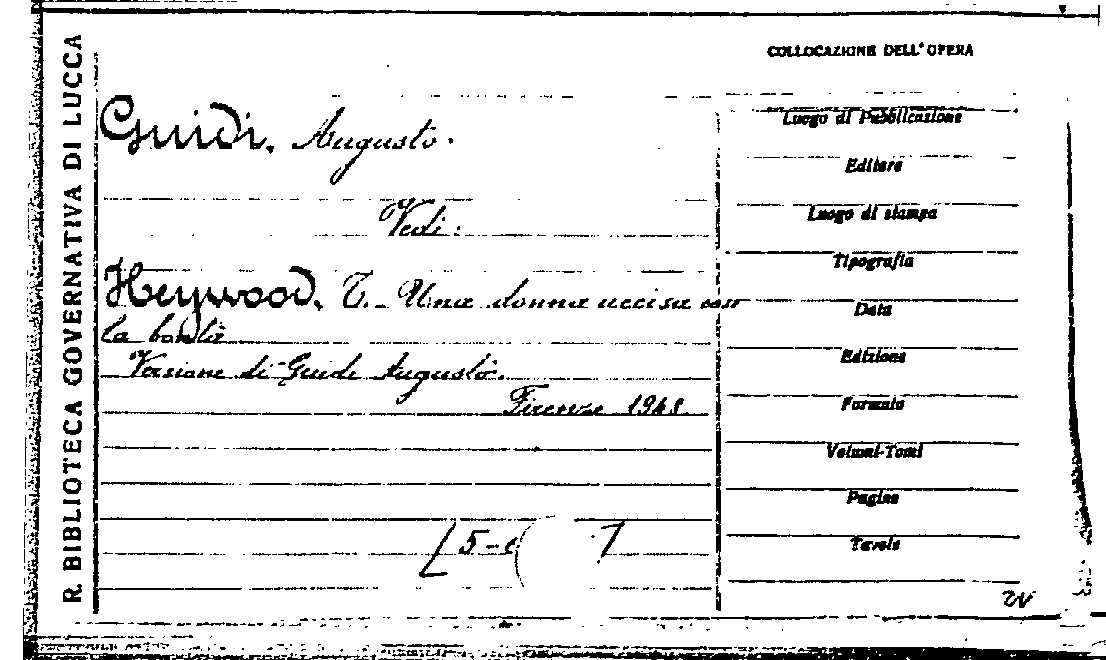 R. BIBLIOTECA GOVERNATIVA DI LUCCA
COLLOCAZIONE DELL'OPERA
Guidi, Augusto.
Vedi:
Heywood, T. - Una donna uccisa con
la bontà
Versione di Guidi Augusto.
Firenze 1948
Luogo di Pubblicazione
Editore
Luogo di stampa
Tipografia
Data
Edizione
Formato
Volumi-Tomi
Pagine
Tavole